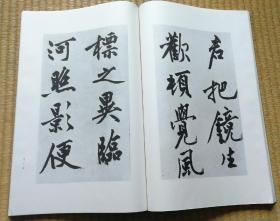 君把镜生
歡頓覺風
標之異臨
河照影便